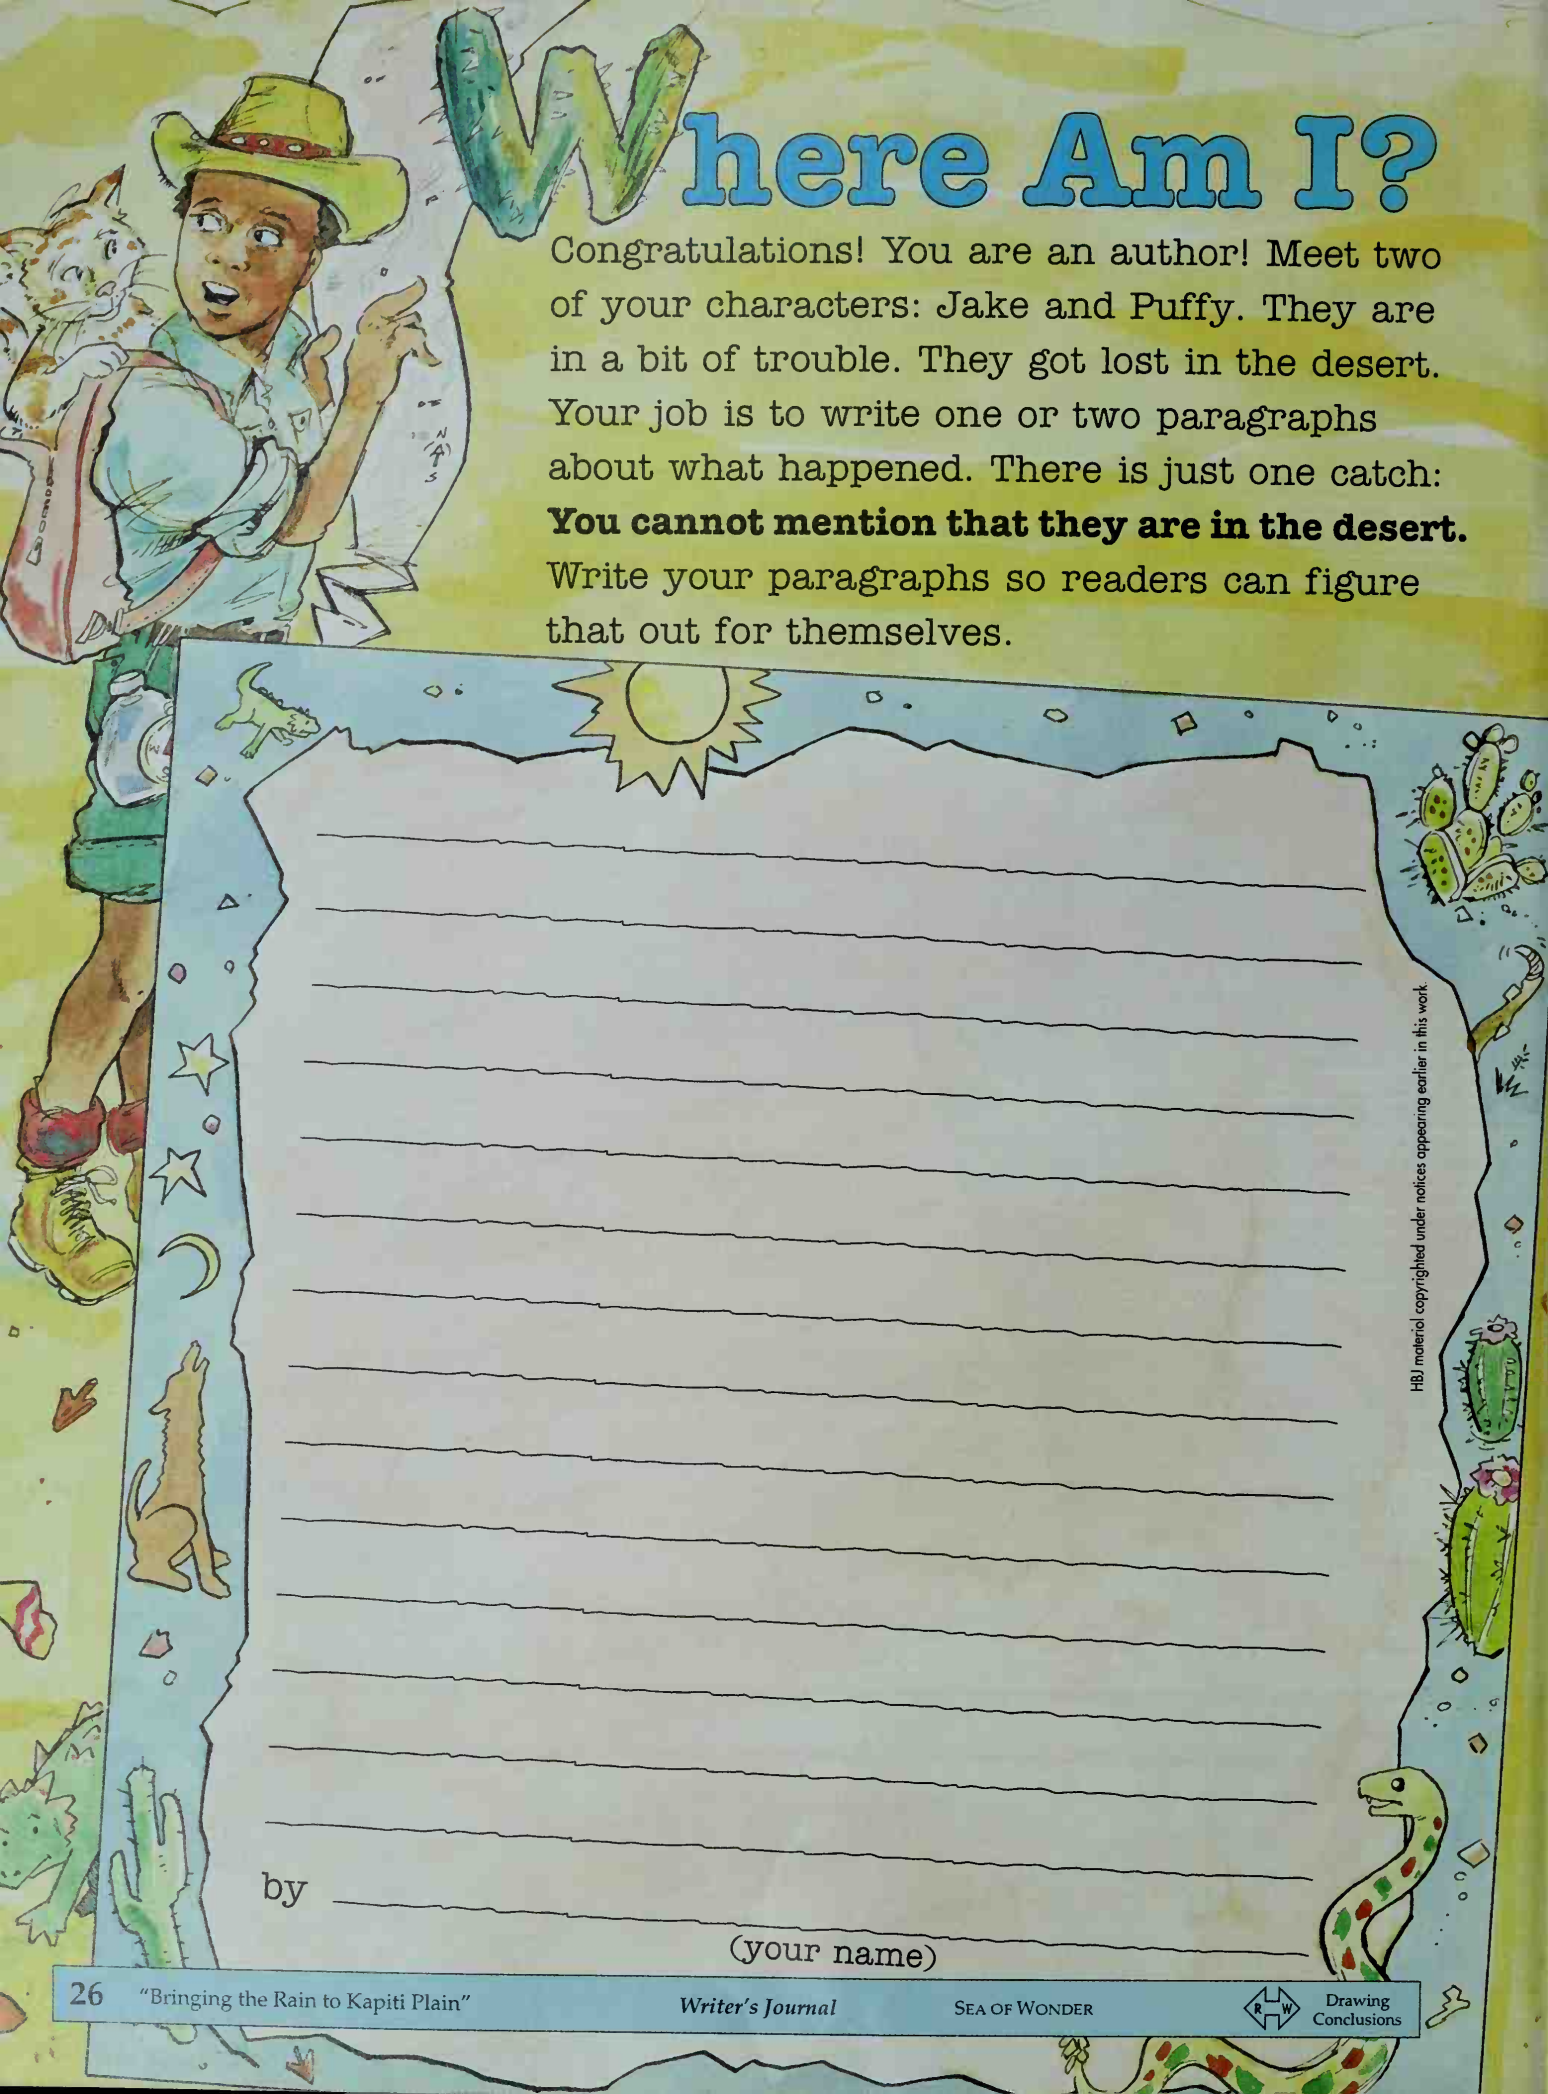 Where Am I?
Congratulations! You are an author! Meet two
of your characters: Jake and Puffy. They are
in a bit of trouble. They got lost in the desert.
Your job is to write one or two paragraphs
about what happened. There is just one catch:
You cannot mention that they are in the desert.
Write your paragraphs so readers can figure
that out for themselves.
N
S
HBJ material copyrighted under notices appearing earlier in this work.
by
(your name)
26 "Bringing the Rain to Kapiti Plain" Writer's Journal SEA OF WONDER R W Drawing
Conclusions